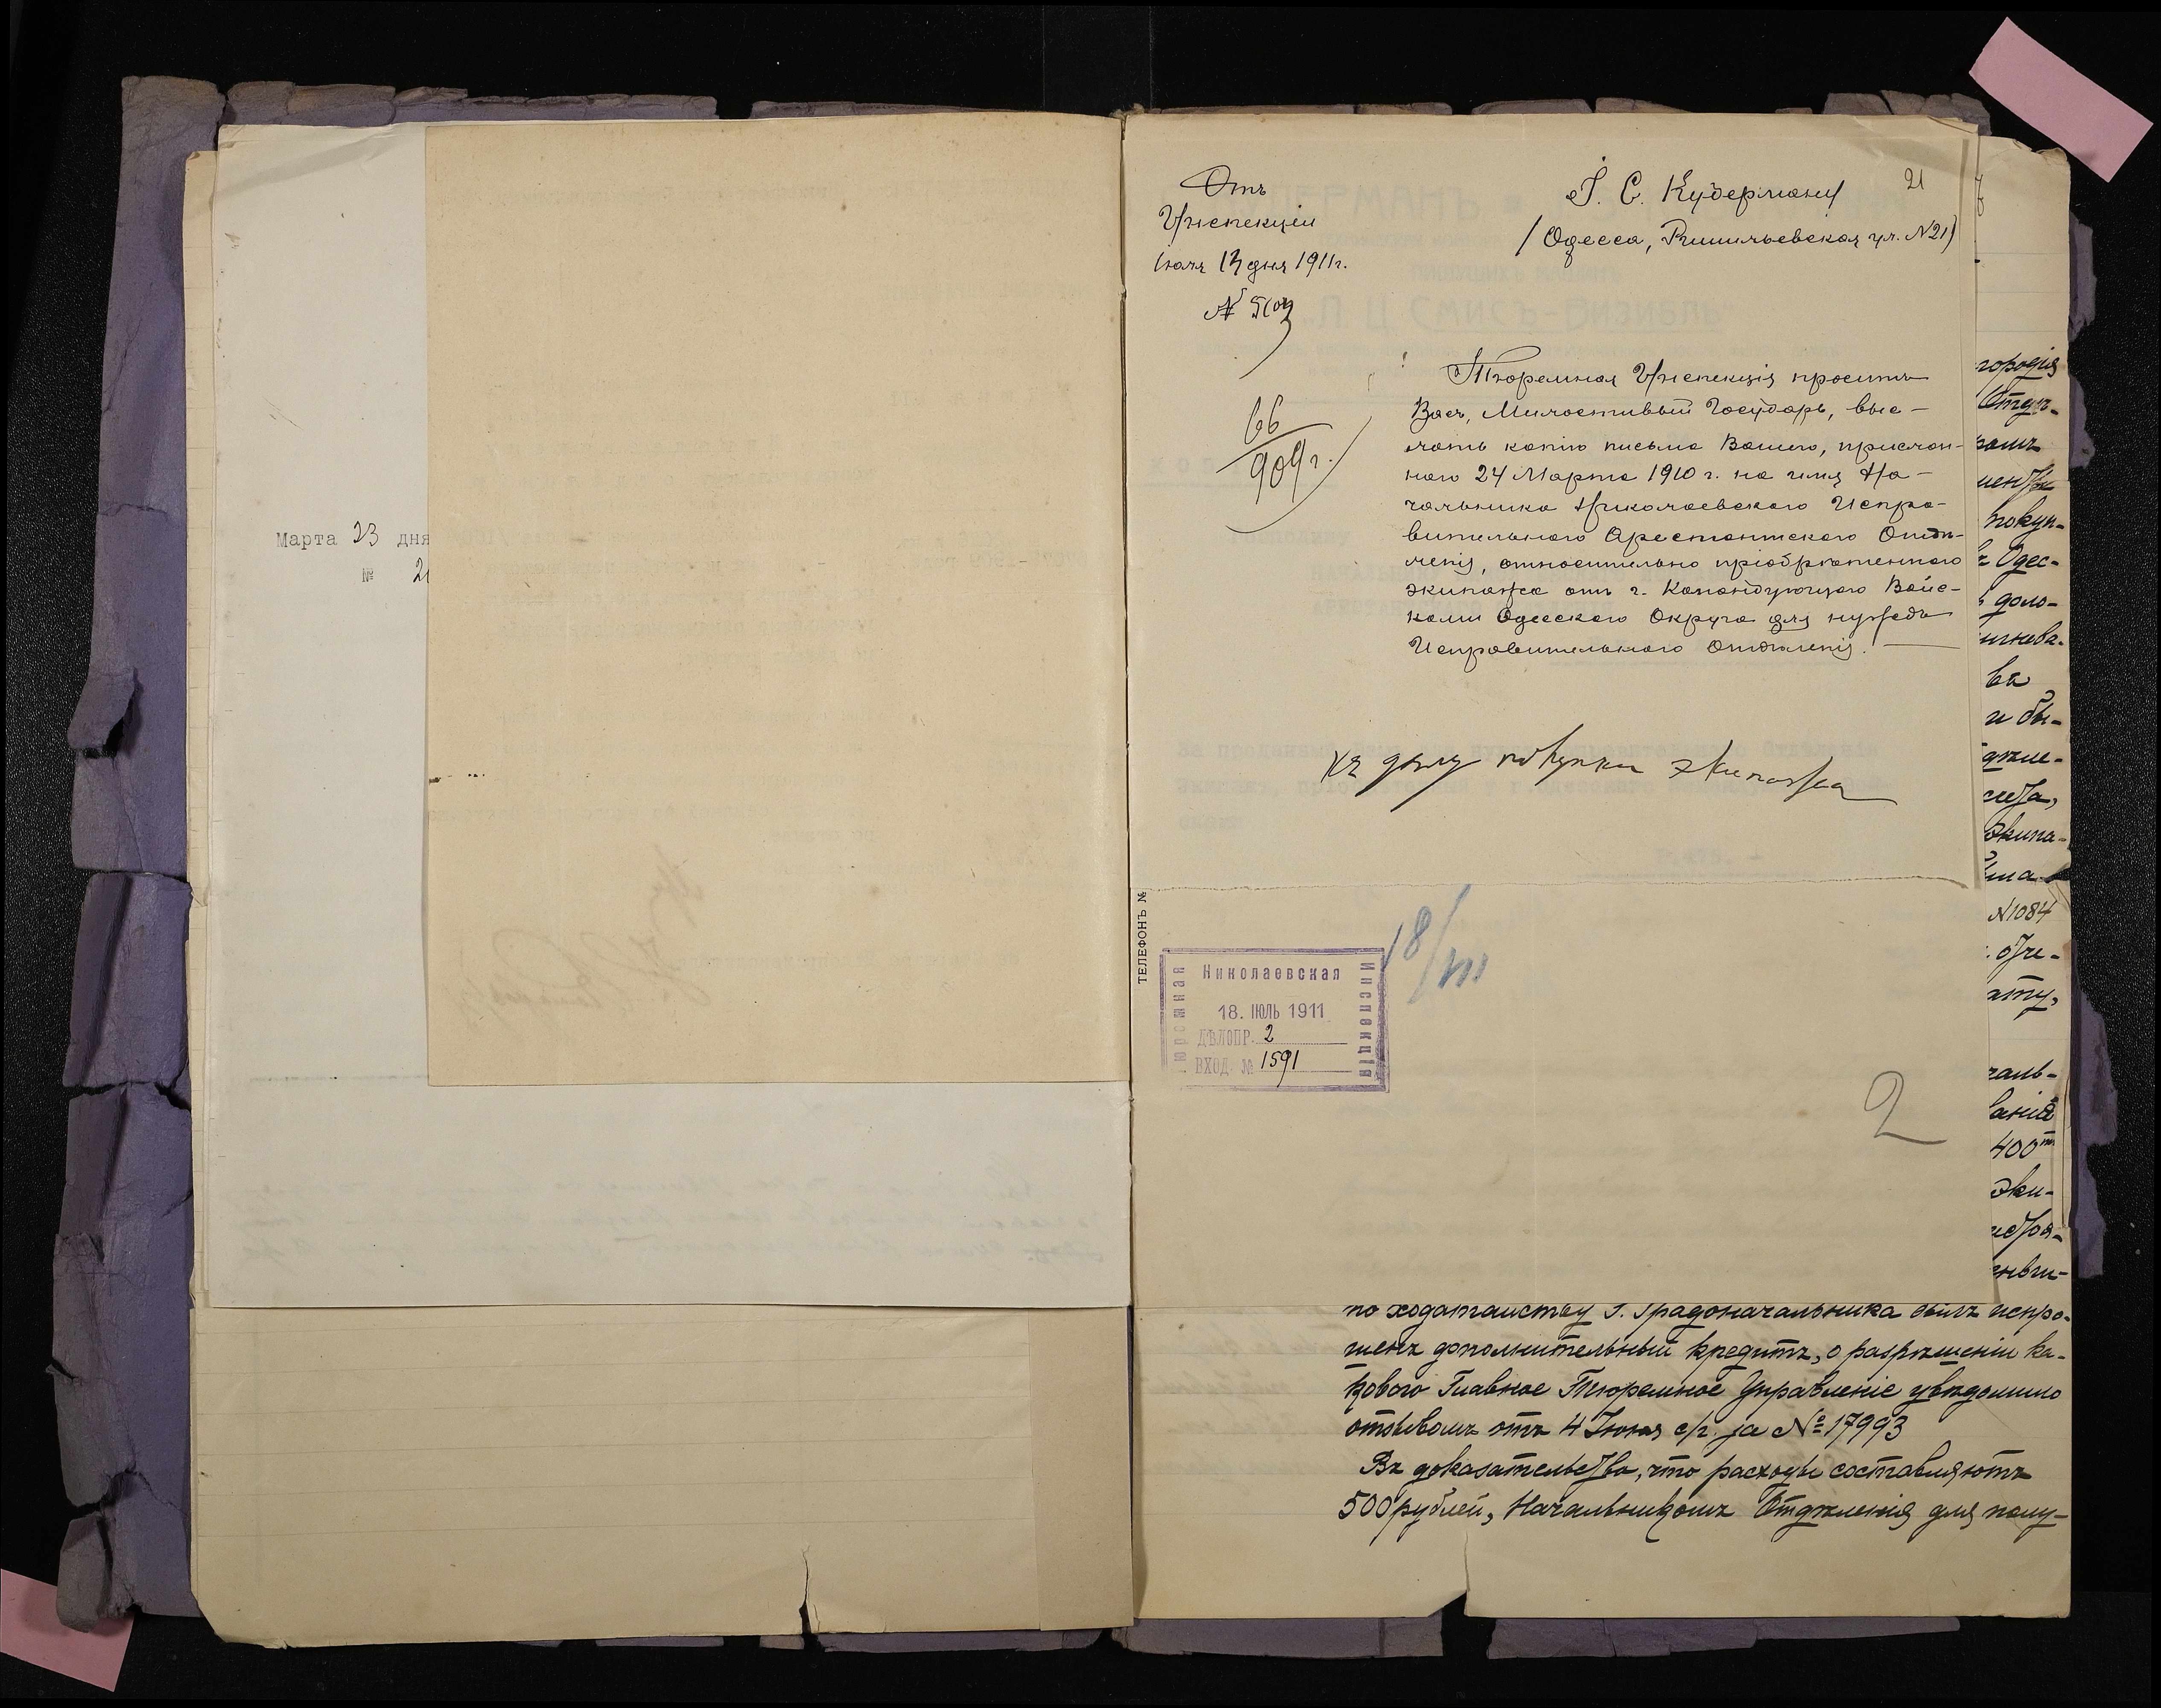 Марта 23 дня
№ 21
Отъ
Инспекціи
Іюля 13 дня 1911 г.
№
66
909 г.
І. С. Кудерману
21
(Одесса, Ришильевская ул. №21)
Тюремная Инспекція проситъ
Васъ, Милостивый Государь, выс-
лать копію письма Вашего, прислан-
наго 24 Марта 1910 г. на имя На-
чальника Николаевскаго Испра-
вительнаго Арестантскаго Отдѣ-
ленія, относительно пріобрѣтеннаго
экипажа отъ г. Командующаго Войс-
ками Одесскаго Округа для нуждъ
Исправительнаго Отдѣленія.
Къ дѣлу покупки экипажа
ТЕЛЕФОНЪ №
18/VII
Николаевская
Тюремная
Инспекція
18. ІЮЛЬ 1911
ДѢЛОПР. 2
ВХОД. № 1591
2
городія
Отдѣ-
покуп-
Одес-
доло-
въ
и бы-
дѣле-
экипа-
№1084
чаль-
ванія
400
эки-
по ходатайству Г. Градоначальника былъ испро-
шенъ дополнительный кредитъ, о разрѣшеніи ка-
кового Главное Тюремное Управленіе увѣдомило
отзывомъ отъ 4 Іюня с/г. за №17993
Въ доказательство, что расходы составляютъ
500 рублей, Начальникомъ Отдѣленія для полу-